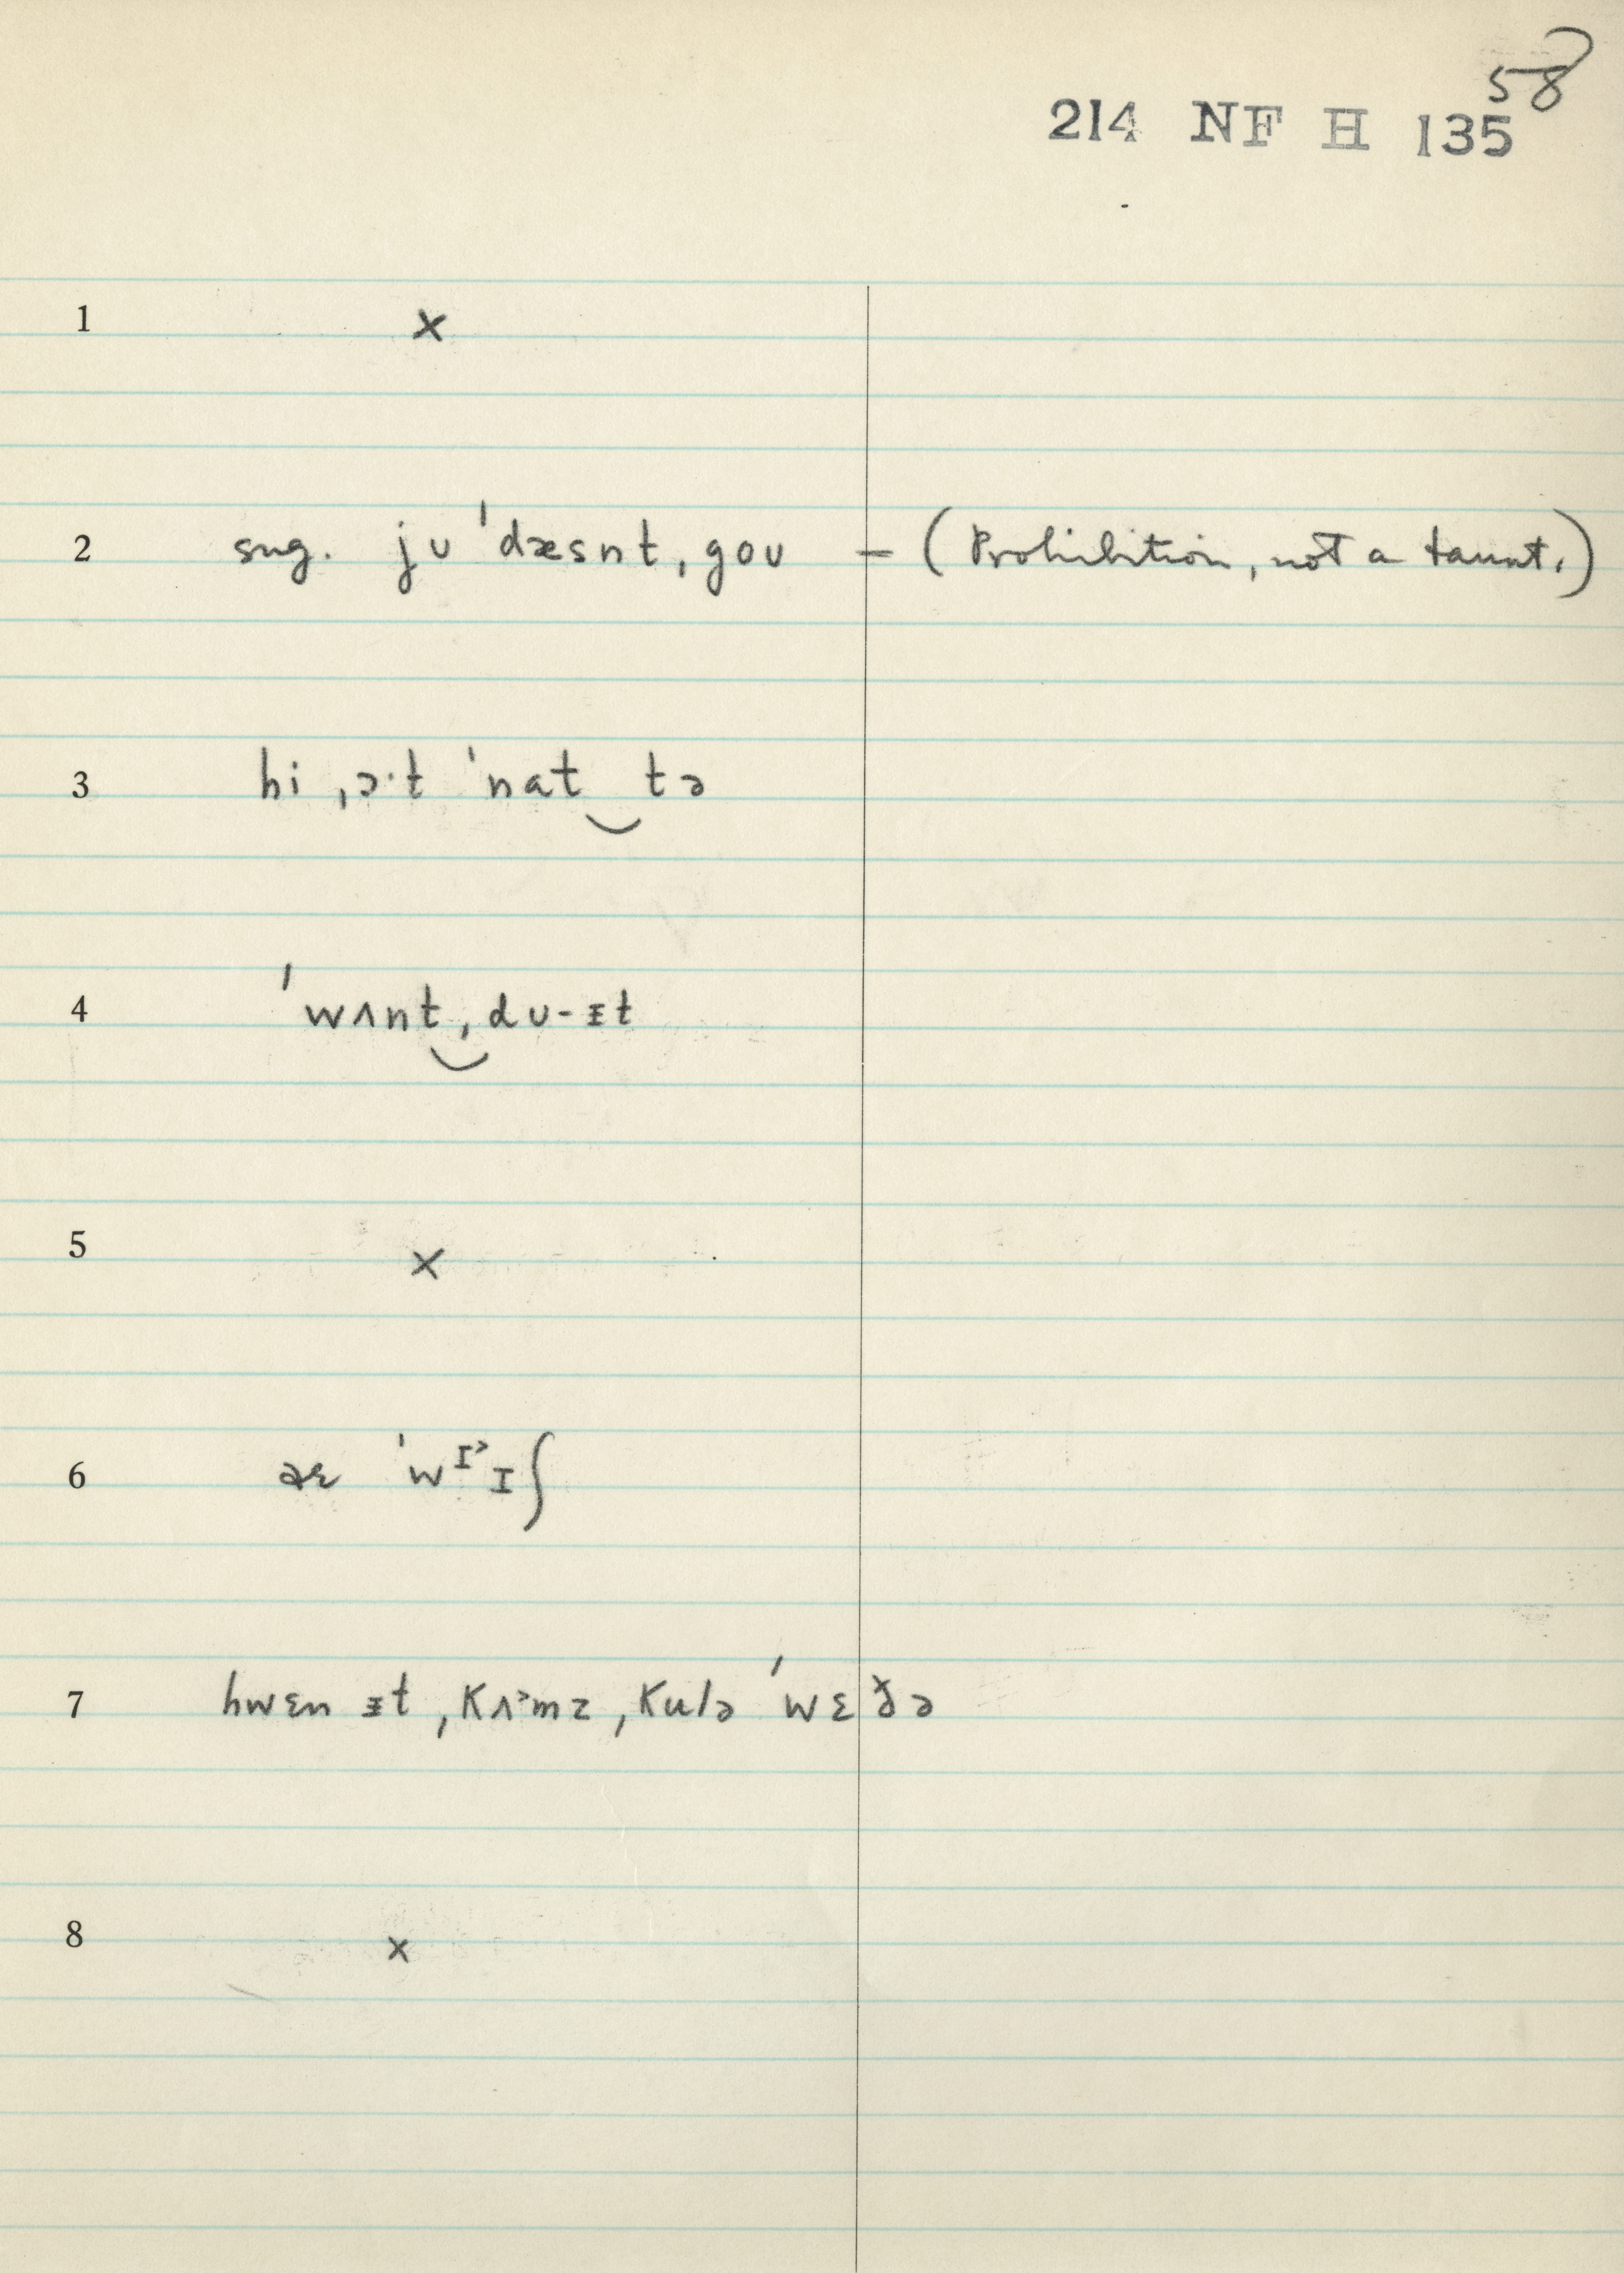 58
214 NF H 135
1 ×
2 sug. jʊ ˈdæsnt ˌgoʊ — (Prohibition, not a taunt.)
3 hi ˌɔ·t ˈnat‿tə
4 ˈwʌnt‿ˌdʊ-ᵻt
5 ×
6 aɛ ˈwɪ˃ɪʃ
7 hwɛn ᵻt ˌkʌ˃mz ˌkulə ˈwɛð̌ə
8 ×